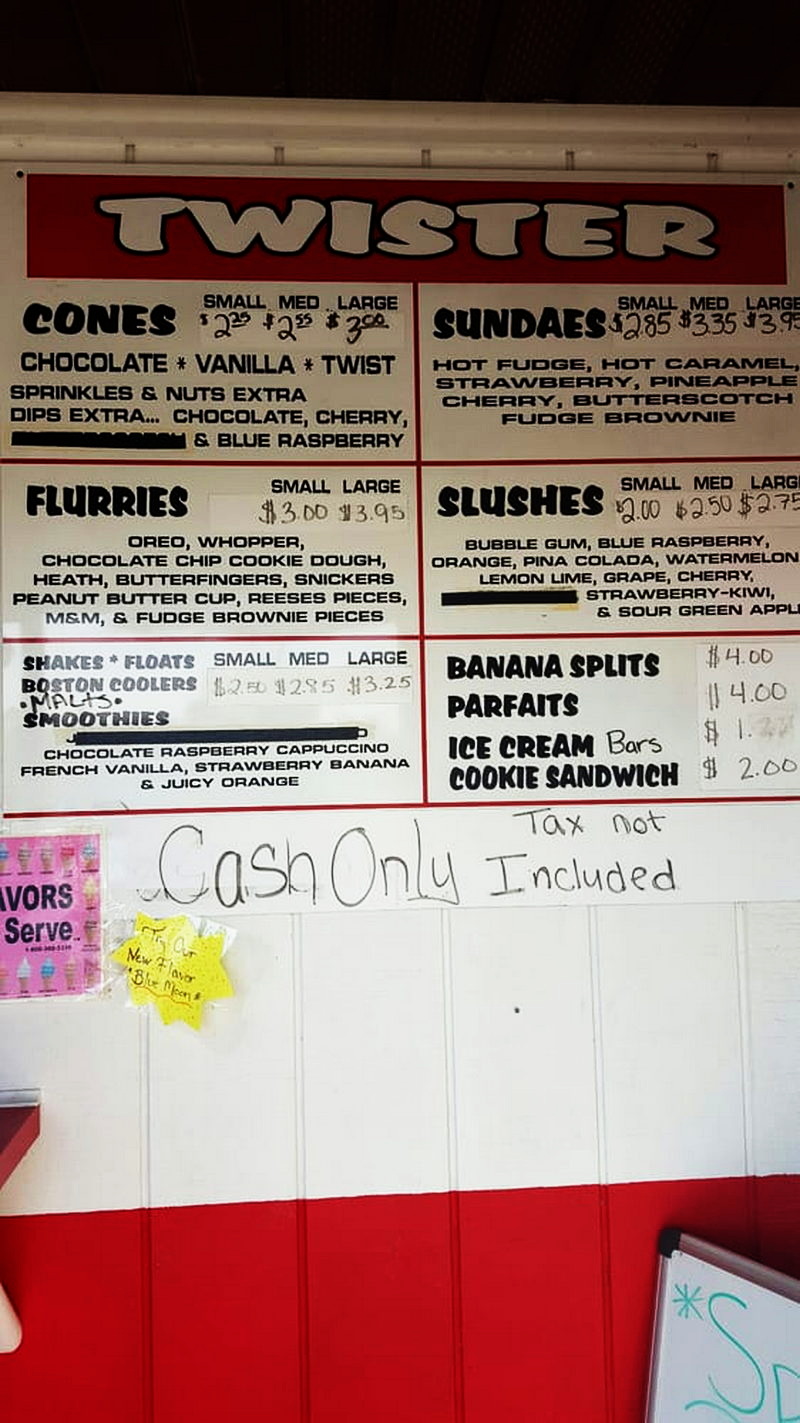 TWISTER
CONES SMALL MED LARGE
$2.25 $2.55 $3.00
CHOCOLATE * VANILLA * TWIST
SPRINKLES & NUTS EXTRA
DIPS EXTRA... CHOCOLATE, CHERRY,
& BLUE RASPBERRY
SUNDAES SMALL MED LARGE
$2.85 $3.35 $3.95
HOT FUDGE, HOT CARAMEL,
STRAWBERRY, PINEAPPLE
CHERRY, BUTTERSCOTCH
FUDGE BROWNIE
FLURRIES SMALL LARGE
$3.00 $3.95
OREO, WHOPPER,
CHOCOLATE CHIP COOKIE DOUGH,
HEATH, BUTTERFINGERS, SNICKERS
PEANUT BUTTER CUP, REESES PIECES,
M&M, & FUDGE BROWNIE PIECES
SLUSHES SMALL MED LARGE
$2.00 $2.50 $2.75
BUBBLE GUM, BLUE RASPBERRY,
ORANGE, PINA COLADA, WATERMELON
LEMON LIME, GRAPE, CHERRY,
STRAWBERRY-KIWI,
& SOUR GREEN APPL
SHAKES * FLOATS SMALL MED LARGE
BOSTON COOLERS $2.50 $2.85 $3.25
•MALTS•
SMOOTHIES
CHOCOLATE RASPBERRY CAPPUCCINO
FRENCH VANILLA, STRAWBERRY BANANA
& JUICY ORANGE
BANANA SPLITS $4.00
PARFAITS 4.00
ICE CREAM Bars $ 1.
COOKIE SANDWICH $ 2.00
Cash Only Tax not
Included
AVORS
Serve
Try Our
New Flavor
"Blue Moon"
*Sp